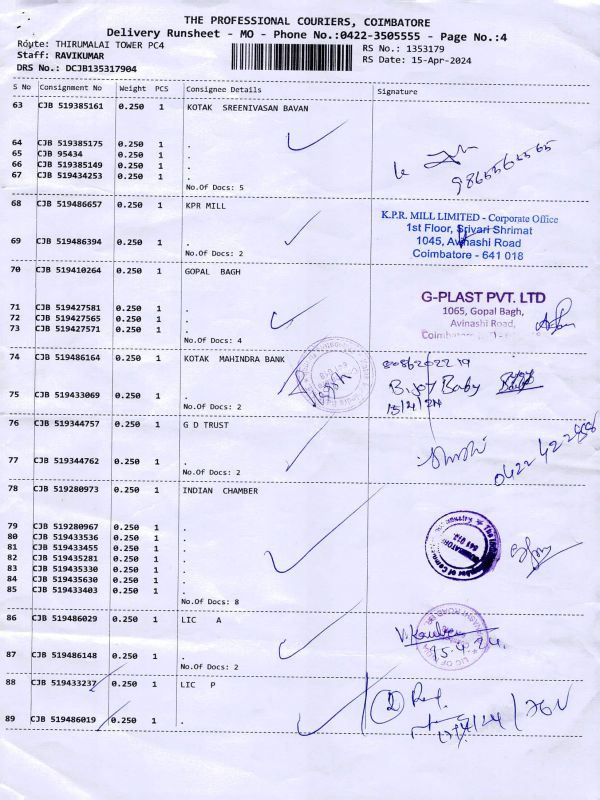 THE PROFESSIONAL COURIERS, COIMBATORE
Delivery Runsheet - MO - Phone No.:0422-3505555 - Page No.:4
Route: THIRUMALAI TOWER PC4
RS No.: 1353179
Staff: RAVIKUMAR
RS Date: 15-Apr-2024
DRS No.: DCJB135317904
S No Consignment No Weight PCS Consignee Details Signature
63 CJB 519385161 0.250 1 KOTAK SREENIVASAN BAVAN
64 CJB 519385175 0.250 1 .
65 CJB 95434 0.250 1 .
66 CJB 519385149 0.250 1 .
67 CJB 519434253 0.250 1 .
No.Of Docs: 5
68 CJB 519486657 0.250 1 KPR MILL
K.P.R. MILL LIMITED - Corporate Office
1st Floor, Srivari Shrimat
1045, Avinashi Road
Coimbatore - 641 018
69 CJB 519486394 0.250 1 .
No.Of Docs: 2
70 CJB 519410264 0.250 1 GOPAL BAGH
G-PLAST PVT. LTD
1065, Gopal Bagh,
Avinashi Road,
71 CJB 519427581 0.250 1 .
72 CJB 519427565 0.250 1 .
73 CJB 519427571 0.250 1 .
No.Of Docs: 4
74 CJB 519486164 0.250 1 KOTAK MAHINDRA BANK
Bijoy Baby
15/4/24
75 CJB 519433069 0.250 1 .
No.Of Docs: 2
76 CJB 519344757 0.250 1 G D TRUST
77 CJB 519344762 0.250 1 .
No.Of Docs: 2
78 CJB 519280973 0.250 1 INDIAN CHAMBER
79 CJB 519280967 0.250 1 .
80 CJB 519433536 0.250 1 .
81 CJB 519433455 0.250 1 .
82 CJB 519435281 0.250 1 .
83 CJB 519435330 0.250 1 .
84 CJB 519435630 0.250 1 .
85 CJB 519433403 0.250 1 .
No.Of Docs: 8
86 CJB 519486029 0.250 1 LIC A
87 CJB 519486148 0.250 1 .
No.Of Docs: 2
88 CJB 519433237 0.250 1 LIC P
89 CJB 519486019 0.250 1 .